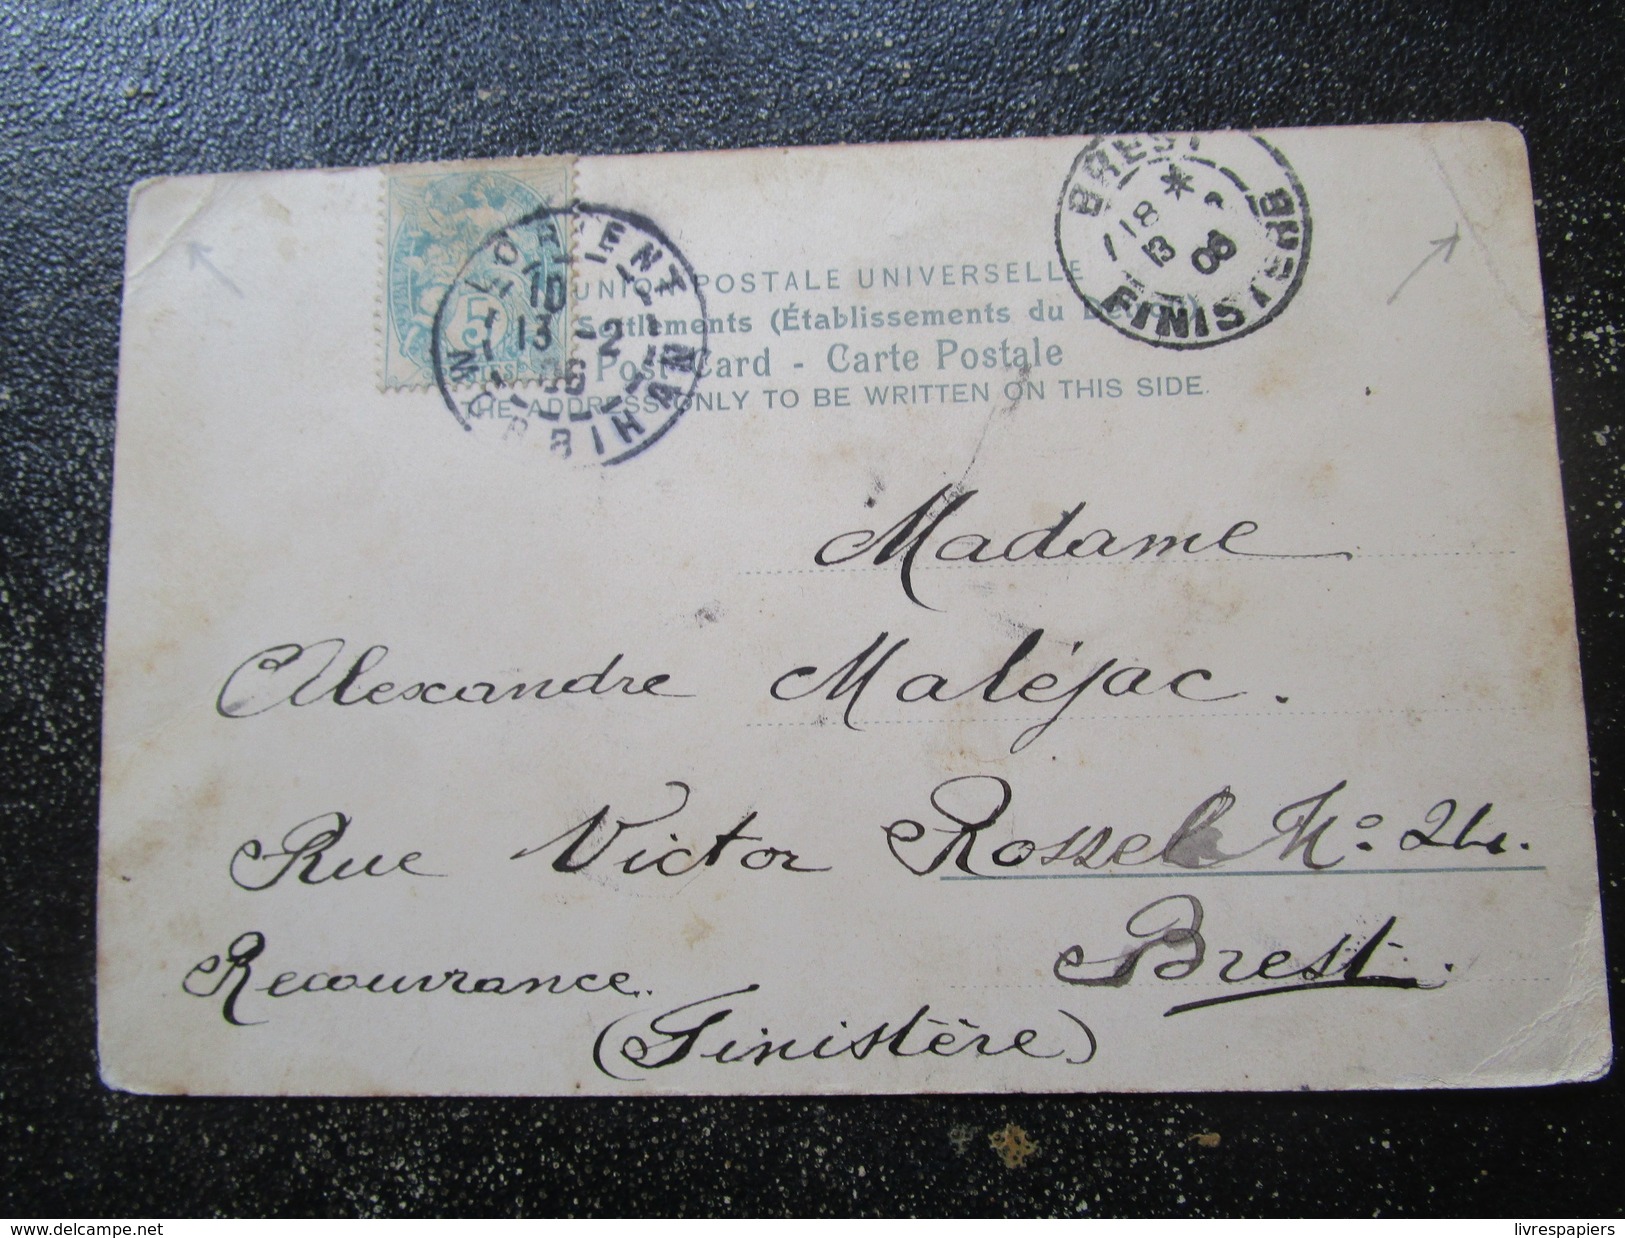 LORIENT
10
13 -2
06
MORBIHAN
5
BREST
18
13
06
FINISTERE
UNION POSTALE UNIVERSELLE
Settlements (Établissements du
Post Card - Carte Postale
THE ADDRESS ONLY TO BE WRITTEN ON THIS SIDE.
Madame
Alexandre Maléjac.
Rue Victor Rossel No. 24.
Recouvrance. Brest.
(Finistère)
delcampe.net
livrespapiers